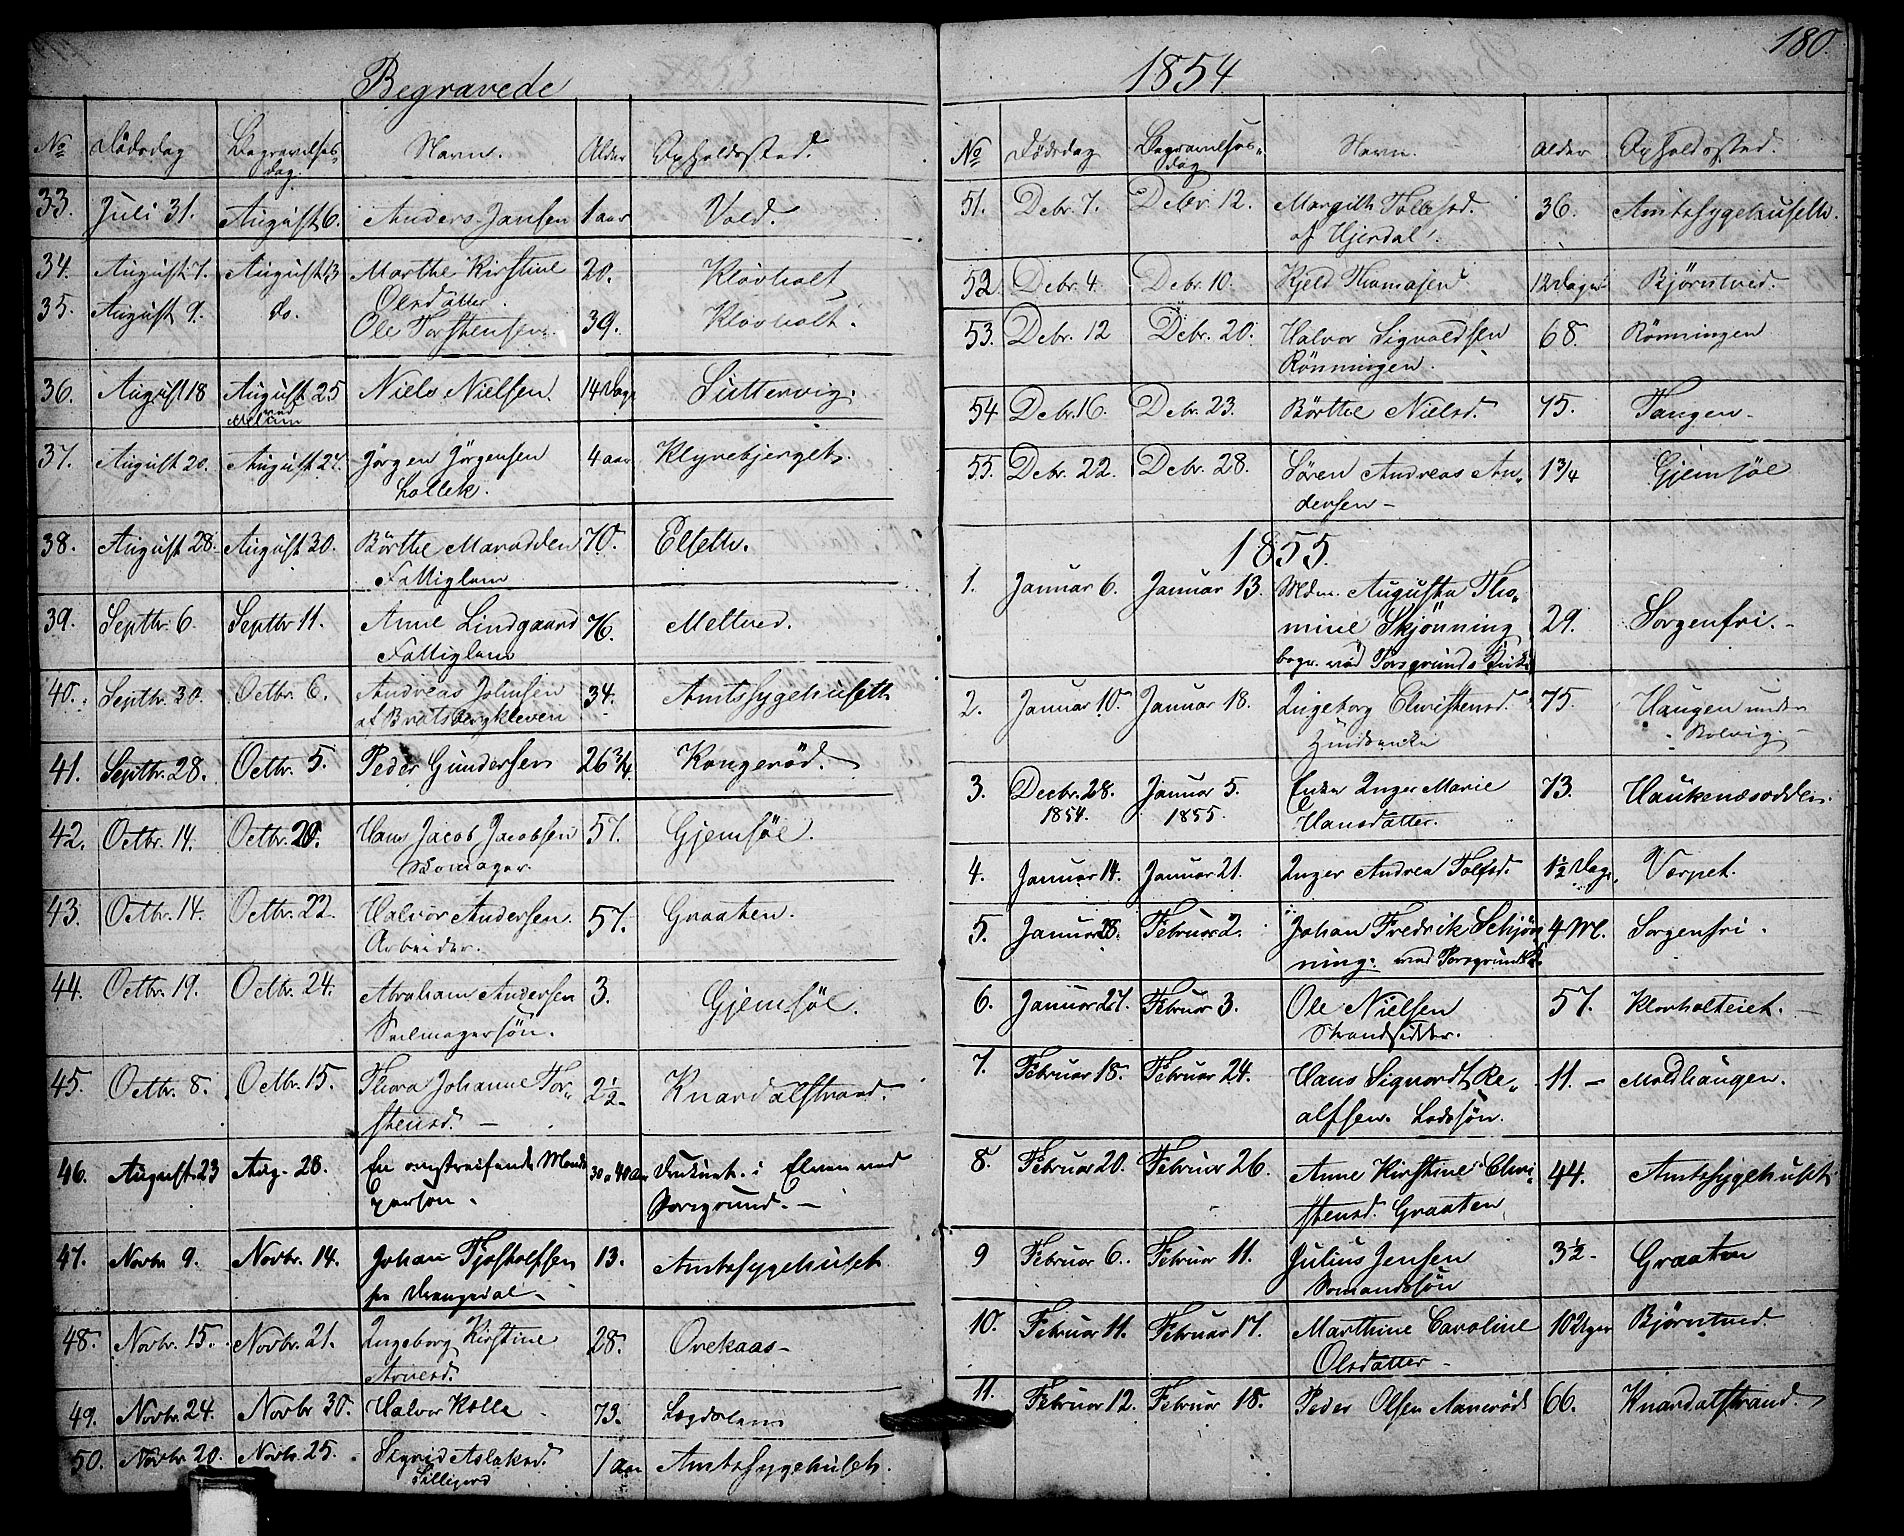 180.
Begravede
No Dödsdag Begravelses- Navn. Alder Opholdssted.
dag.
33. Juli 31. August 6. Anders Jansen 1 aar Vold.
34. August 7. August 13 Marthe Kirstine 20. Klovholt
Olsdatter.
35. August 9. do. Ole Torstensen 39. Klovholt.
36. August 18 August 25 Niels Nielsen 14 Dage
Melum
37. August 20. August 27. Jörgen Jörgensen 4 aar Klyvebjerget.
38. August 28. August 30. Börthe 70.
Fattiglem
39. Septbr 6. Septbr 11. Anne Lindgaard 76. Meltved.
Fattiglem
40. Septbr. 30. Octbr. 6. Andreas Johnsen 34. Amtssygehuset
af Bratsbergkleven
41. Septbr. 28. Octbr. 5. Peder Gundersen 26 3/4 Kongeröd.
42. Octbr. 14. Octbr. 20. Hans Jacob Jacobsen 57. Gjemsöe.
Skomager.
43. Octbr. 14. Octbr. 22. Halvor Andersen 57. Graaten.
Arbeider.
44. Octbr. 19. Octbr. 24. Abraham Andersen 3. Gjemsöe.
Seilmagersön.
45. Octbr. 8. Octbr. 15. Thora Johanne Tor- 2 1/2 Knardalstrand.
stensd.
46. August 23 Aug. 28. En omstreifende Mands 30 a 40 Aar Druknet i Elven ved
person. Porsgrund.
47. Novbr 9. Novbr. 14. Johan Tjostolfsen 13. Amtssygehuset
fra Drangedal.
48. Novbr. 15. Novbr. 21. Ingeborg Kirstine 28. Ovekaas
Arnesd.
49. Novbr. 24. Novbr 30. Halvor Kolle 73. Lægdslem
50. Novbr 20. Novbr. 25. Sigrid Aslaksd. 1 aar Amtssygehuset.
Silljord
1854.
No Dödsdag Begravelses- Navn. Alder Opholdssted.
dag
51. Debr. 7. Debr. 12. Margith Tollefsd. 36. Amtssygehuset.
af Hjerdal.
52. Debr. 4. Debr. 10. Kjeld Thomasen 12 Dager Björntved.
53. Debr. 12 Debr. 20. Halvor Sigvaldsen 68. Rönningen
Rönningen.
54 Debr. 16. Debr. 23. Börthe Nielsd. 75. Tangen
55. Debr. 22. Debr. 28. Sören Andreas An- 1 3/4 Gjemsöe
dersen
1855.
1. Januar 6. Januar 13. Mdm. Augusta Tho-
mine Skjönning 29. Sorgenfri.
begr. ved Porsgrunds Kirke
2. Januar 10. Januar 18. Ingeborg Christensd. 75. Haugen under
Bolvig
3. Decbr. 28. Januar 5. Enke Inger Marie 73. Haukenæsodden.
1854. 1855. Hansdatter.
4. Januar 14. Januar 21. Inger Andrea Tolfsd. 1 1/2 Dag. Verpet.
5. Januar 28. Februar 2. Johan Fredrik Schjön- 4 M. Sorgenfri.
ning. ved Porsgrunds K.
6. Januar 27. Februar 3. Ole Nielsen 57. Klovholteiet.
Strandsidder.
7. Februar 18. Februar 24. Hans Sigvardt Re- 11. Moldhaugen.
alfsen. Lodssön.
8. Februar 20. Februar 26. Anne Kirstine Chri- 44. Amtssygehuset
stensd. Graaten
9 Februar 6. Februar 11. Julius Jensen 3 1/2 Graaten
Sömandssön
10. Februar 11. Februar 17. Marthine Caroline 10 Uger Björntved
Olsdatter
11. Februar 12. Februar 18. Peder Olsen Aaneröd 66. Knardalstrand.